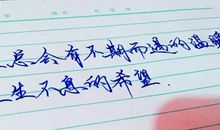 总会有不期而遇的温暖
生生不息的希望.